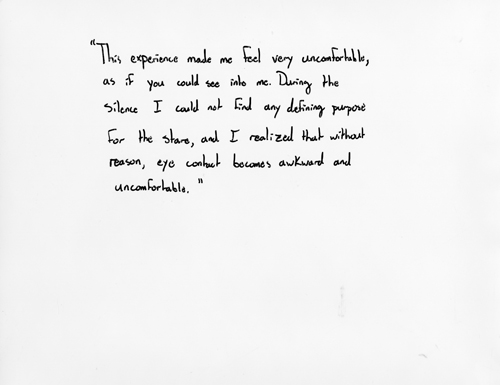 "This experience made me feel very uncomfortable,
as if you could see into me. During the
silence I could not find any defining purpose
for the stare, and I realized that without
reason, eye contact becomes awkward and
uncomfortable."